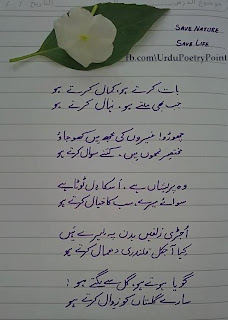 SAVE NATURE
SAVE LIFE
fb.com/UrduPoetryPoint
بات کرتے ہو، کمال کرتے ہو
جب بھی ملتے ہو، نہال کرتے ہو
چھوڑو! غیروں کی مجھ میں کھو جاؤ
مختصر لمحوں میں، کتنے سوال کرتے ہو
وہ پریشاں ہے، اُسکا دل ٹوٹا ہے
سوائے میرے، سب کا خیال کرتے ہو
اُجڑی زلفیں بدن پہ لیرے ہیں
کیا آجکل قلندری دھمال کرتے ہو
گویا ہوتے ہو، گل سے لگتے ہو!
سارے گلستاں کو زوال کرتے ہو